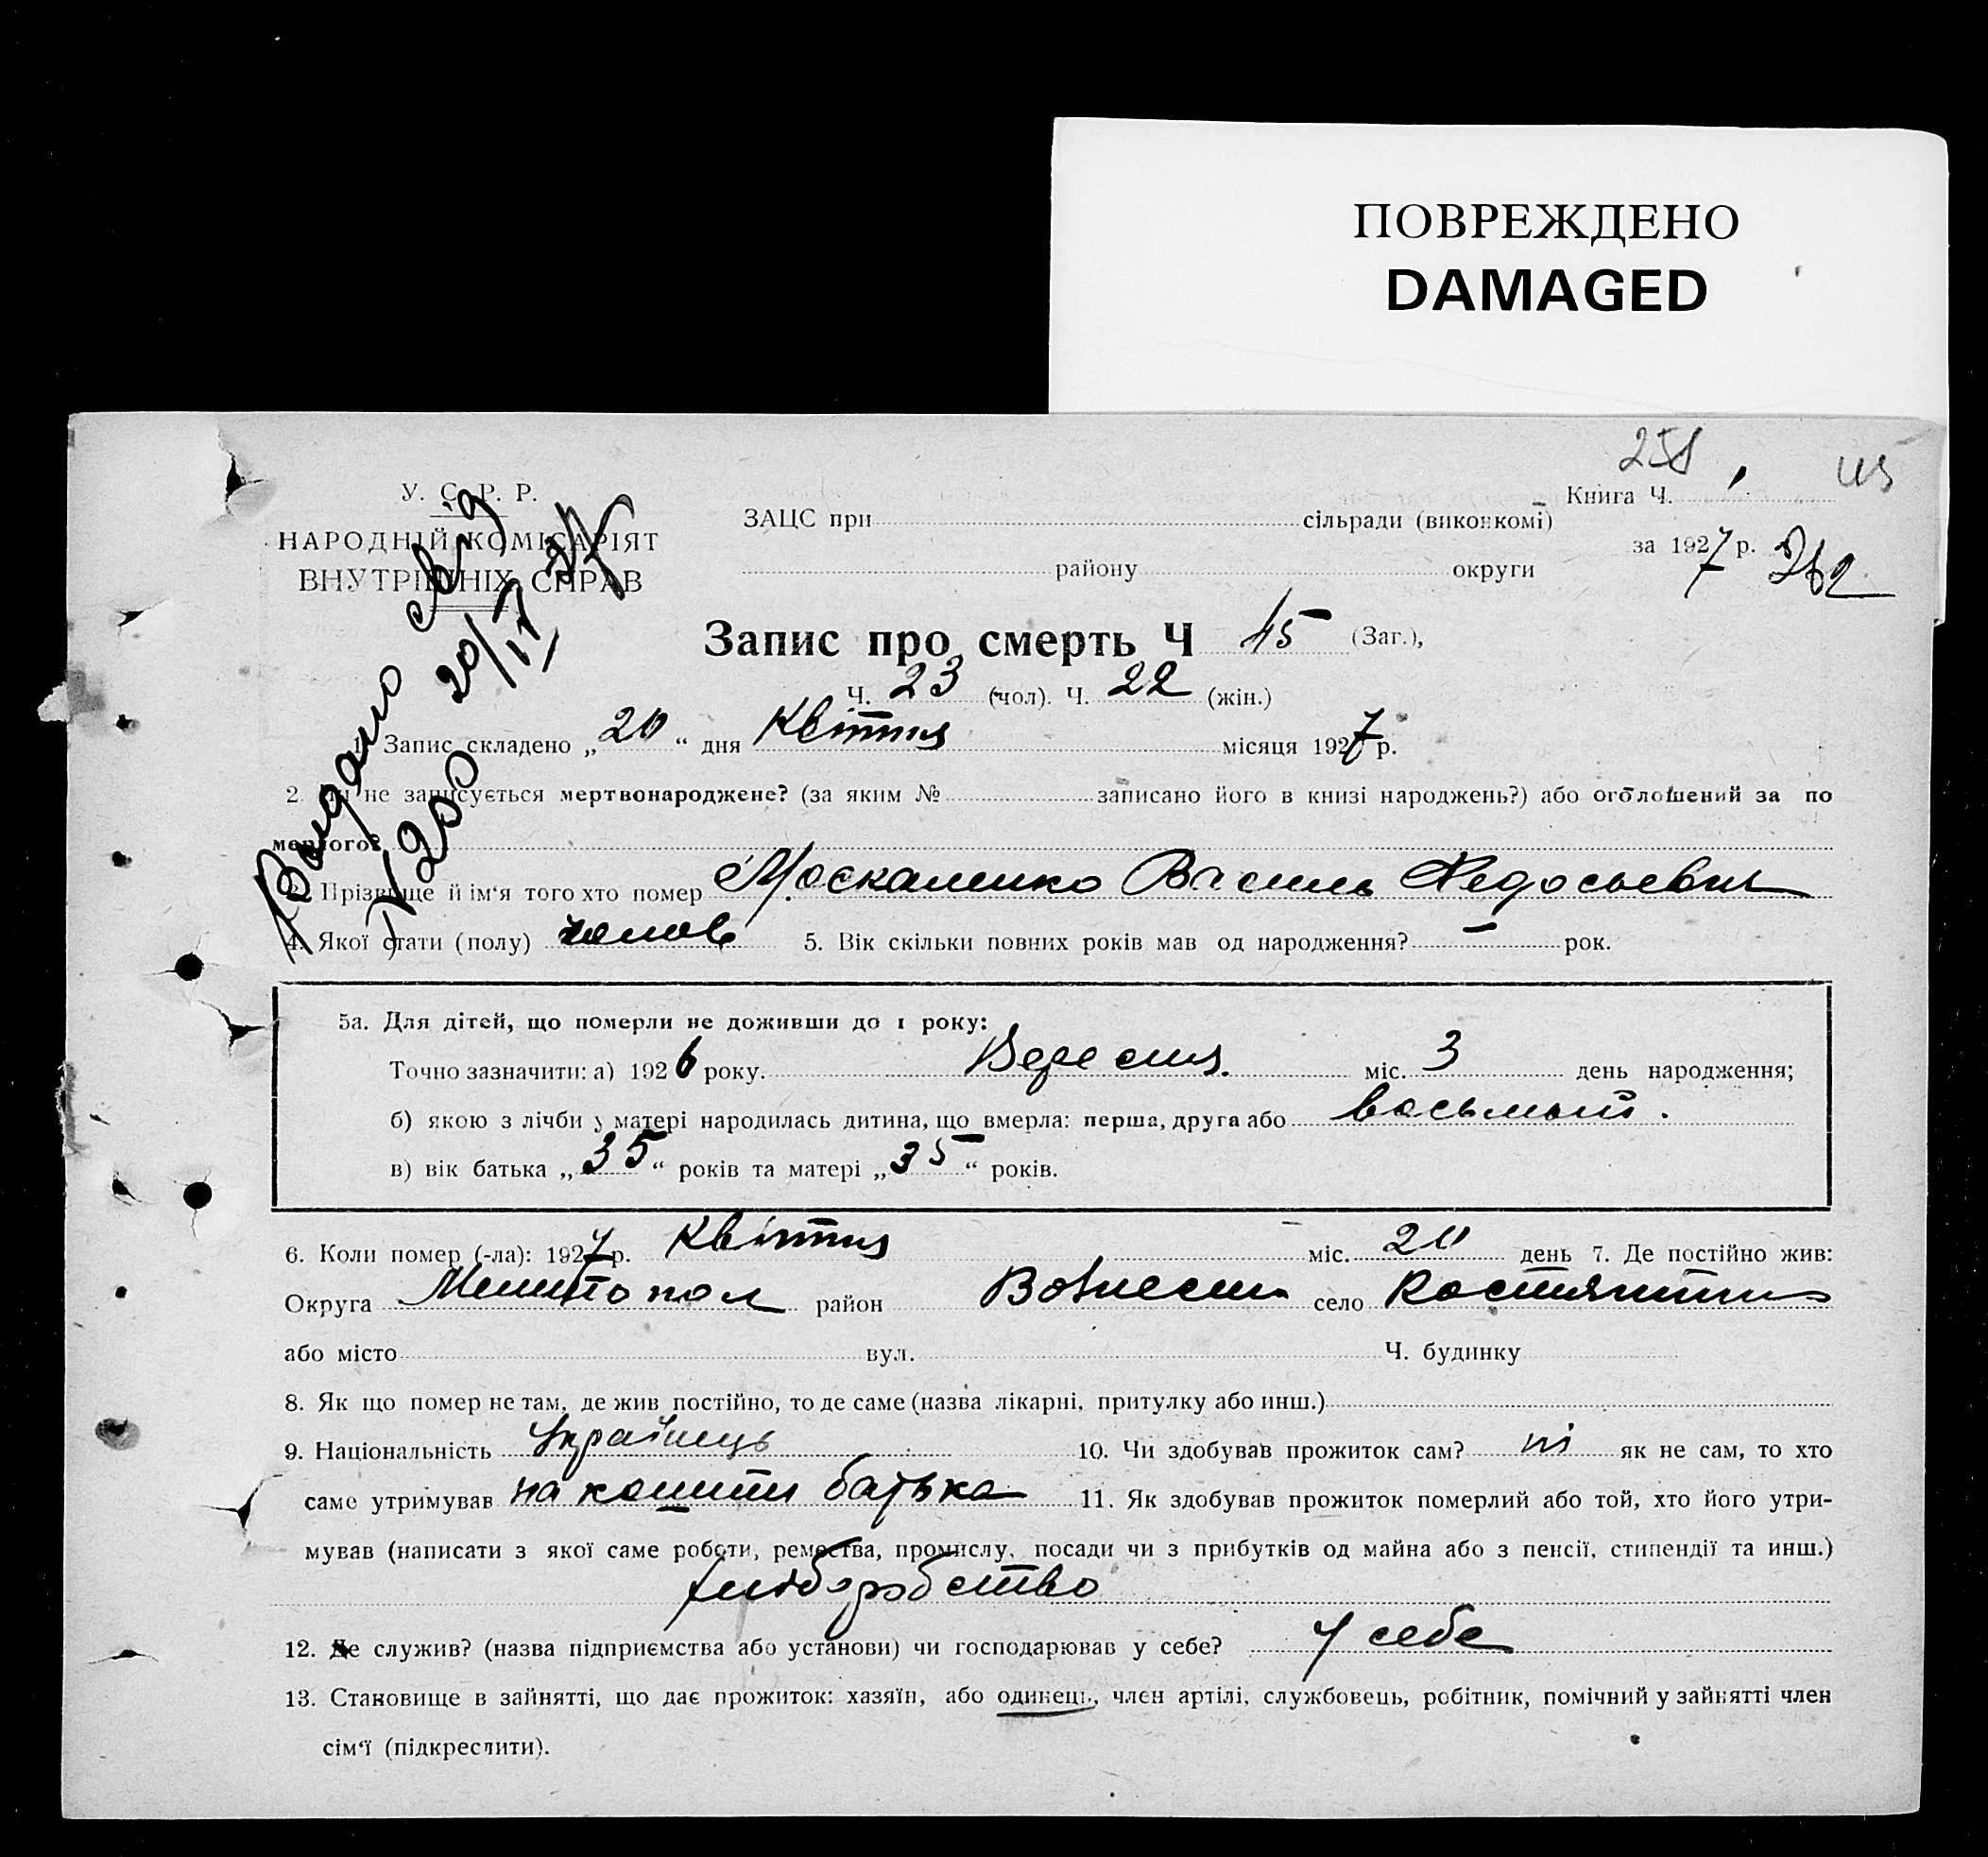 ПОВРЕЖДЕНО
DAMAGED
258
У. С. Р. Р.
Книга Ч.
НАРОДНІЙ КОМІСАРІЯТ
ЗАЦС при сільради (виконкомі)
за 1927 р.
ВНУТРІШНІХ СПРАВ
району округи
Видано
20/IV
Запис про смерть Ч 45 (Заг.),
Ч. 23 (чол). Ч. 22 (жін.)
1. Запис складено „20“ дня Квітня місяця 1927 р.
2. Чи не записується мертвонароджене? (за яким № записано його в книзі народжень?) або оголошений за по
мерлого?
3. Прізвище й ім'я того хто помер Москаленко Василь Федосьевич
4. Якої стати (полу) чолов 5. Вік скільки повних років мав од народження? – рок.
5а. Для дітей, що померли не доживши до 1 року:
Точно зазначити: а) 1926 року. Вересня. міс. 3 день народження;
б) якою з лічби у матері народилась дитина, що вмерла: перша, друга або восьмой.
в) вік батька „35“ років та матері „35“ років.
6. Коли помер (-ла): 1927 р. Квітня міс. 20 день 7. Де постійно жив:
Округа Мелитопол район Вознесен село Костянтин
або місто вул. Ч. будинку
8. Як що помер не там, де жив постійно, то де саме (назва лікарні, притулку або инш.)
9. Національність Українець 10. Чи здобував прожиток сам? ні як не сам, то хто
саме утримував на кошти батька 11. Як здобував прожиток померлий або той, хто його утри-
мував (написати з якої саме роботи, ремества, промислу, посади чи з прибутків од майна або з пенсії, стипендії та инш.)
хліборобство
12. Де служив? (назва підприємства або установи) чи господарював у себе? У себе
13. Становище в зайнятті, що дає прожиток: хазяїн, або одинець, член артілі, службовець, робітник, помічний у зайнятті член
сім'ї (підкреслити).